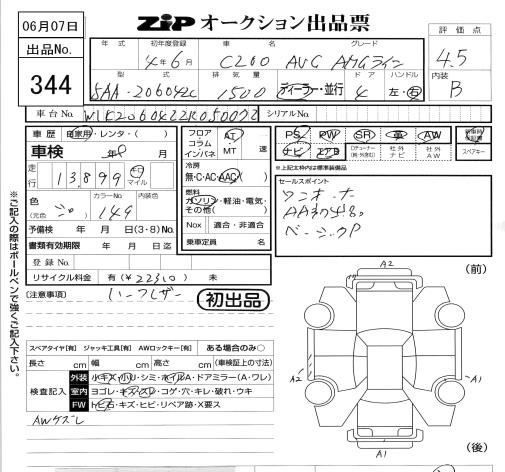 06月07日
ZiP オークション出品票
出品No.
344
年 式
初年度登録
車 名
グレード
4年6月
C200 AVG AMGライン
評 価 点
4.5
内装
B
型 式
排 気 量
ドア
ハンドル
5AA-206042C
1500
ディーラー・並行
4
左・右
車台No.
W1K2060422R050072
シリアルNo.
車 歴
自家用・レンタ・( )
車検 年 月
走行
13,899
キロ
マイル
色
(元色)
カラーNo
149
内装色
予備検 年 月 日(3・8)No.
書類有効期限 年 月 日迄
登録No.
リサイクル料金 有(¥22310) 未
フロア
コラム
インパネ
AT
MT
速
冷房
無・C・AC・AAC
燃料
ガソリン・軽油・電気・
その他( )
Nox 適合・非適合
乗車定員 名
PS PW SR 革 AW
ナビ エアB
Dチューナー
社 外
ナ ビ
社 外
A W
スペアキー
※上記太枠内は標準装備品
セールスポイント
ワンオーナー
ベーシックP
(注意事項)
初出品
スペアタイヤ[有] ジャッキ工具[有] AWロックキー[有] ある場合のみ○
長さ cm 幅 cm 高さ cm (車検証上の寸法)
検査記入
外装 小キズ・小凹・シミ・ホイルA・ドアミラー(A・ワレ)
室内 ヨゴレ・キズ・スレ・コゲ・穴・キレ・破れ・ウキ
FW トビ石・キズ・ヒビ・リペア跡・X要ス
AWガズレ
※ご記入の際はボールペンで強くご記入下さい。
(前)
A2
A2
A1
A1
(後)